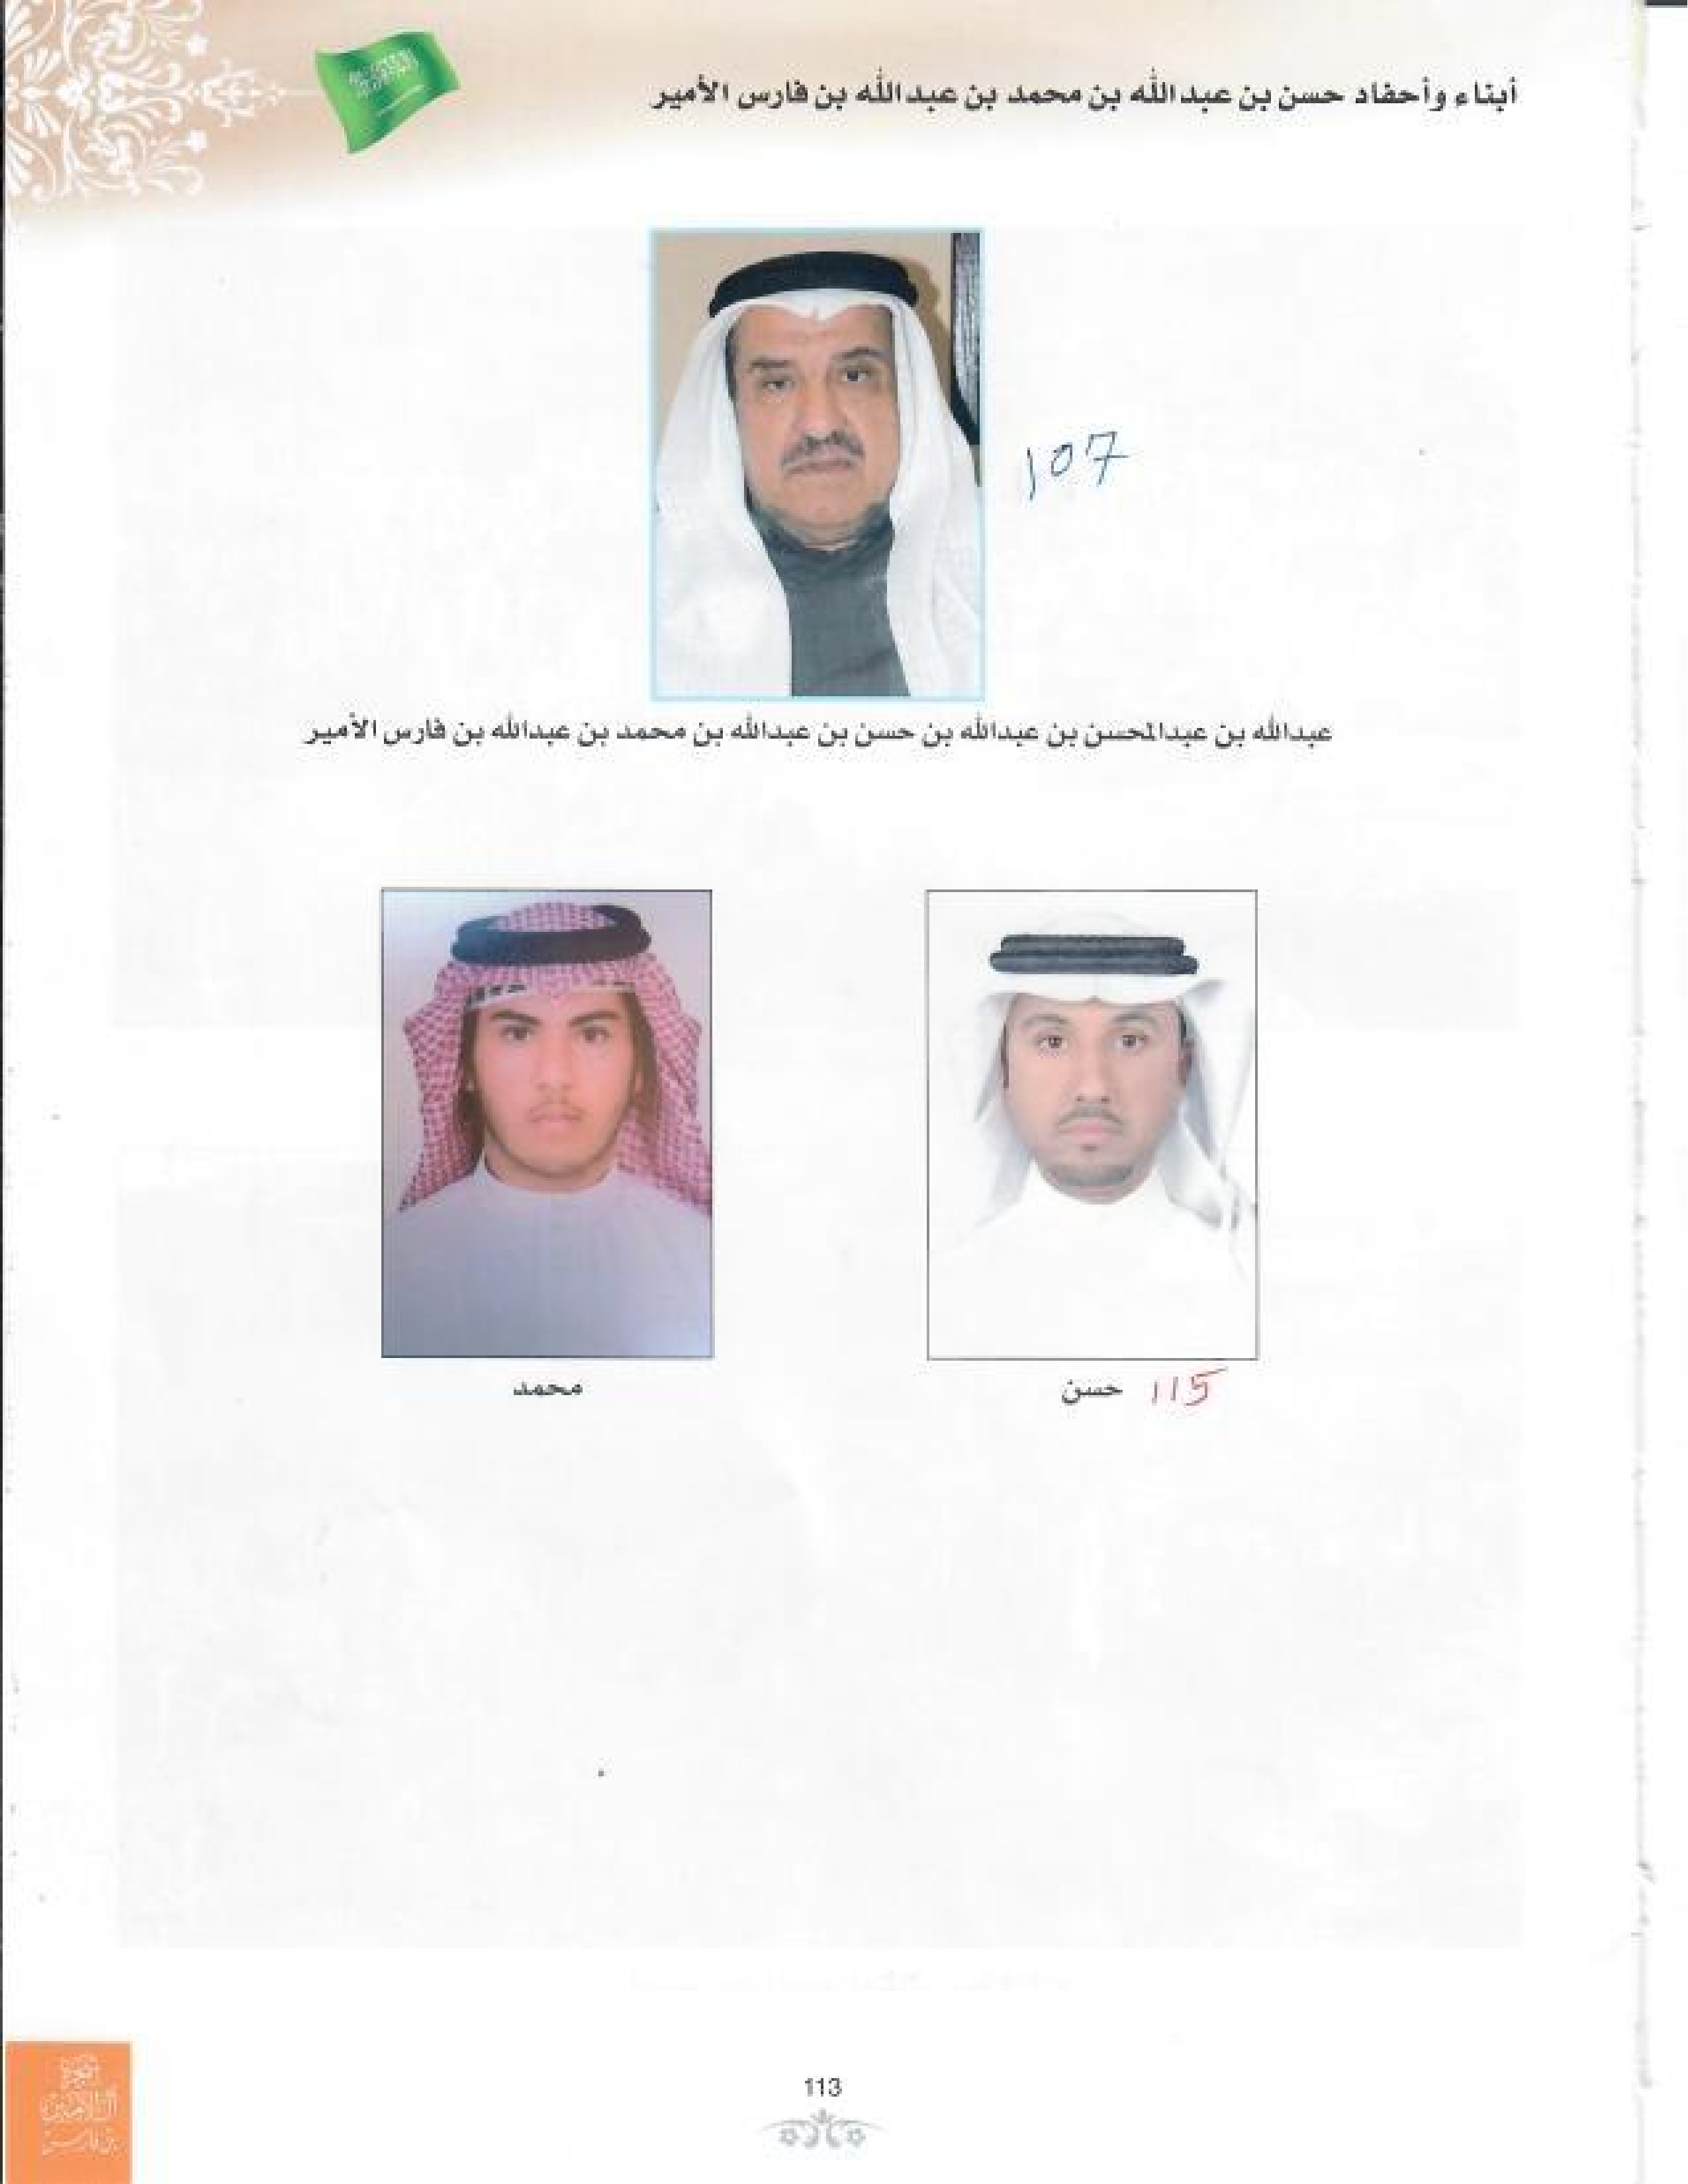 أبناء وأحفاد حسن بن عبدالله بن محمد بن عبدالله بن فارس الأمير
107
عبدالله بن عبدالمحسن بن عبدالله بن حسن بن عبدالله بن محمد بن عبدالله بن فارس الأمير
حسن 115
محمد
113
بن فارس